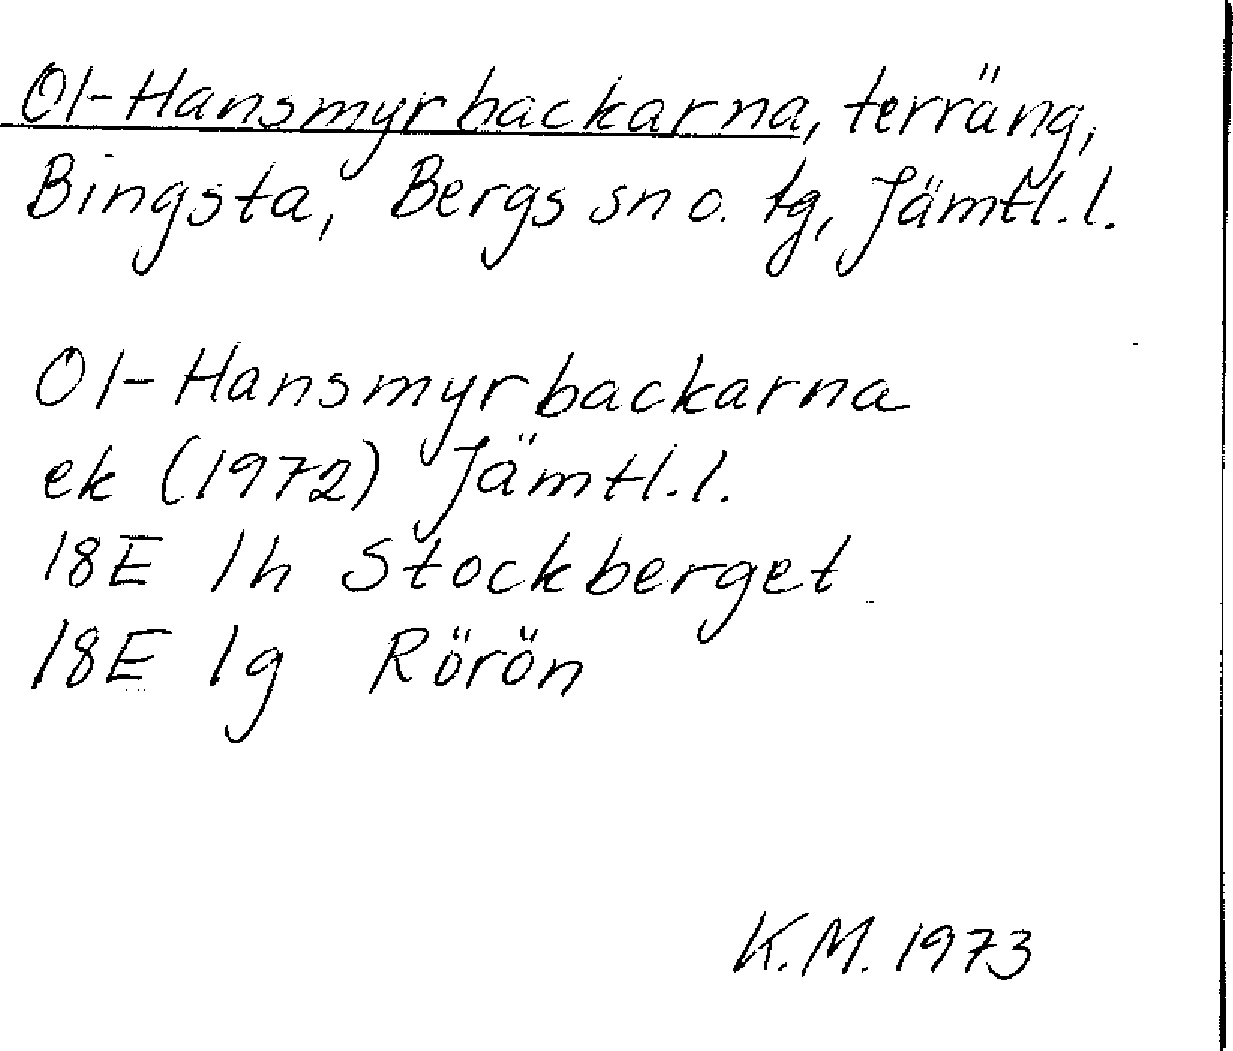 Ol-Hansmyrbackarna, terräng,
Bingsta, Bergs sn o. tg, Jämtl. l.
Ol-Hansmyrbackarna
ek (1972) Jämtl. l.
18E 1h Stockberget
18E 1g Rörön
K.M. 1973